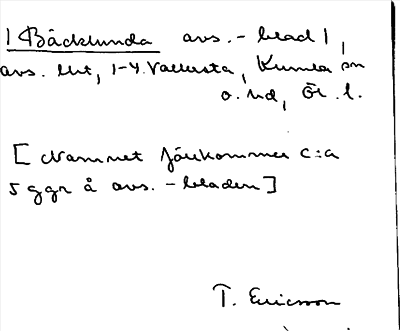 | Bäcklunda avs.-blad |,
avs. Utt, 1-4. Vallersta, Kumla sn
o. hd, Ör. l.
[Namnet förekommer c:a
5 ggr å avs.-bladen]
T. Ericsson